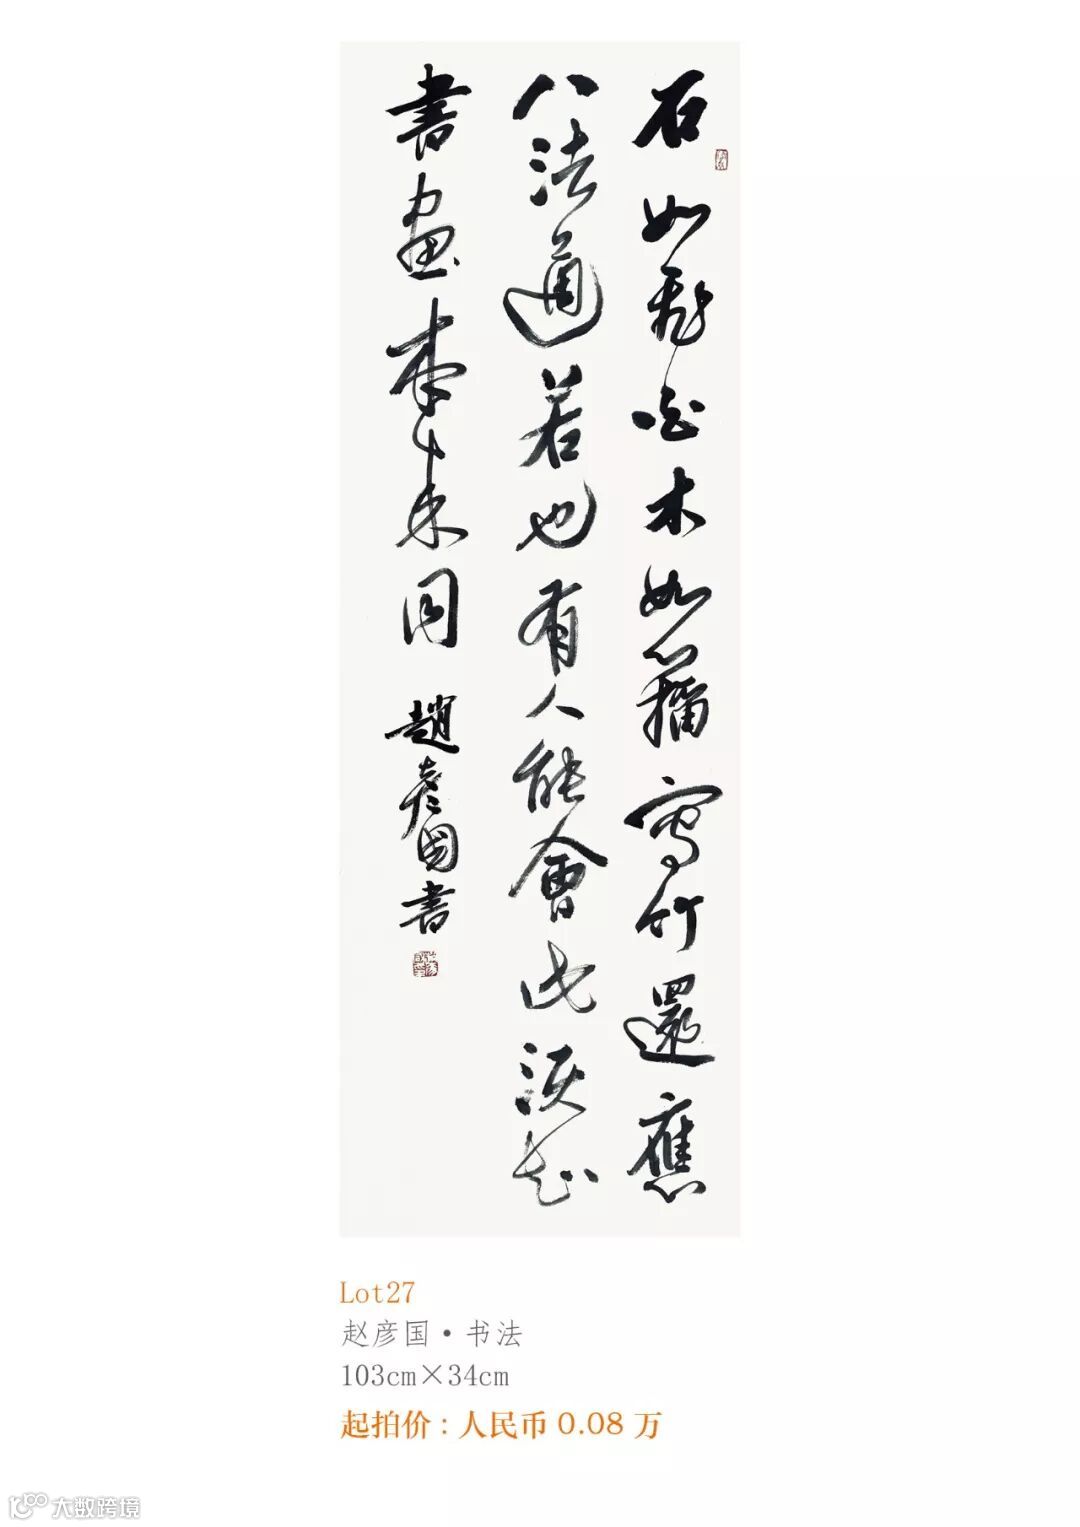 石如飛白木如籀寫竹還應
八法通若也有人能會此須知
書畫本來同 趙彦國書
Lot27
赵彦国·书法
103cm×34cm
起拍价：人民币 0.08 万
大数跨境